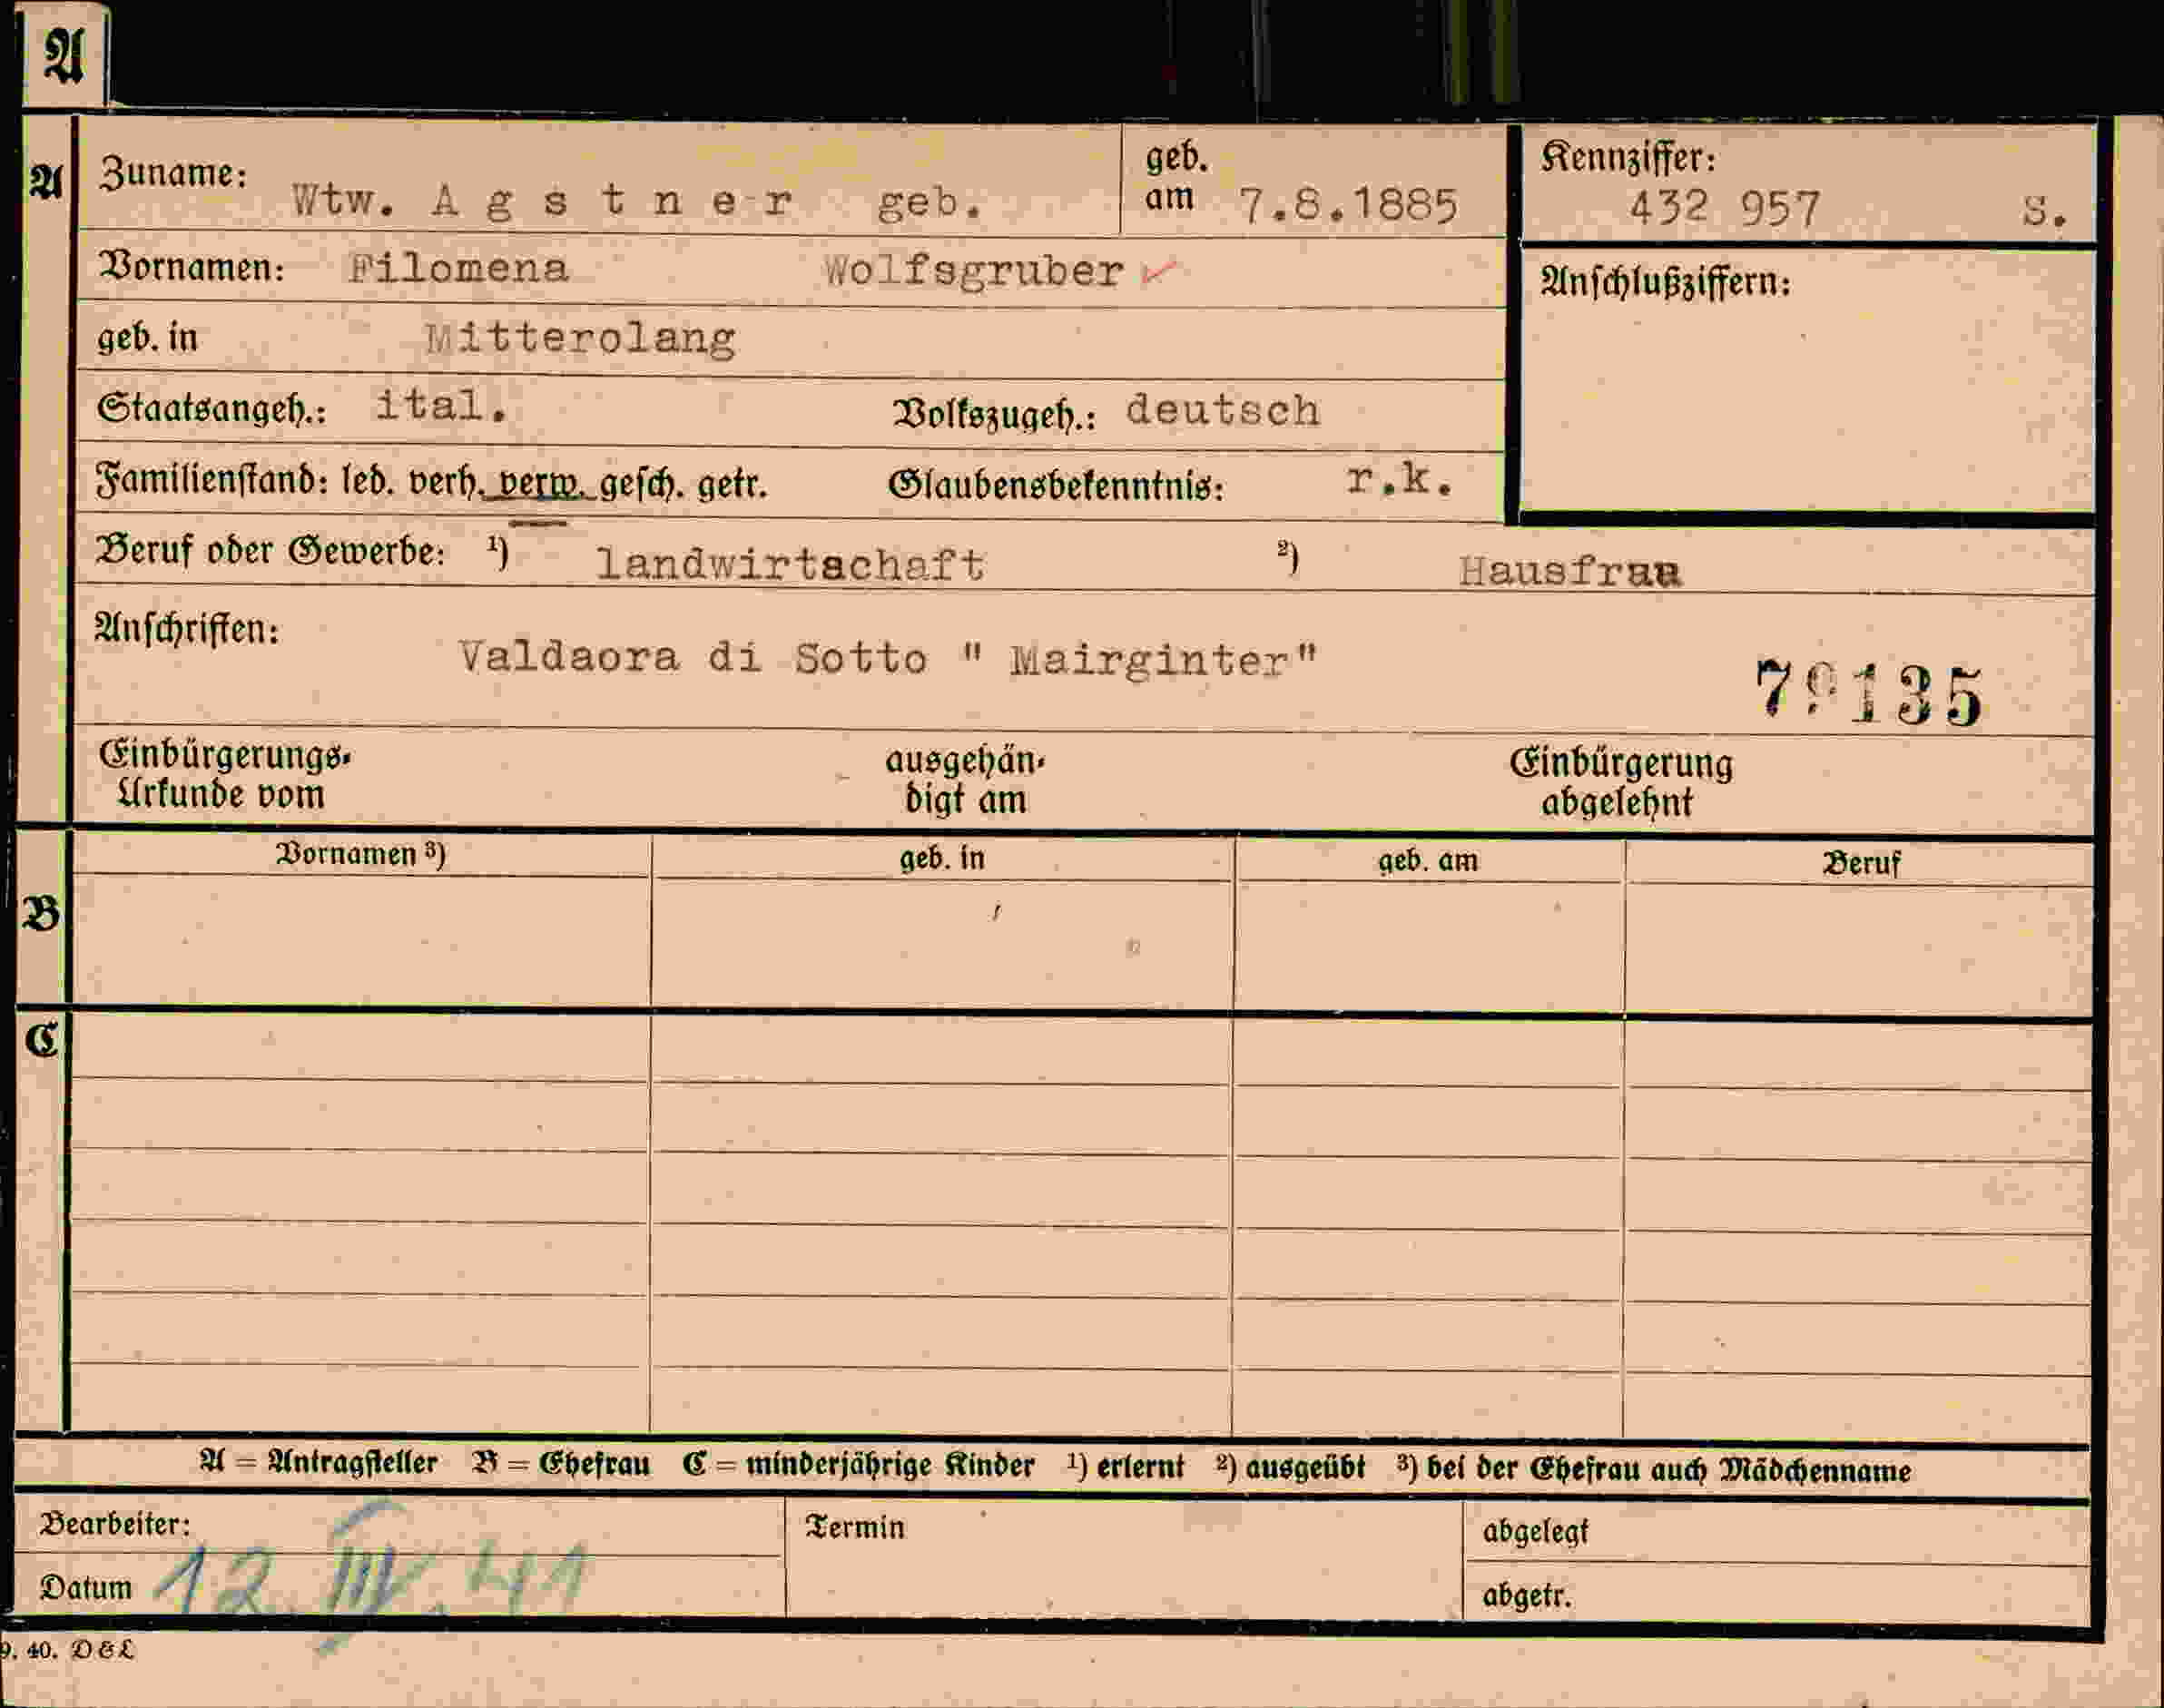 A
A
Zuname: Wtw. A g s t n e r geb.
geb. am 7.8.1885
Kennziffer: 432 957 S.
Vornamen: Filomena Wolfsgruber ✓
Anschlußziffern:
geb. in Mitterolang
Staatsangeh.: ital. Volkszugeh.: deutsch
Familienstand: led. verh. verw. gesch. getr. Glaubensbekenntnis: r.k.
Beruf oder Gewerbe: ¹) landwirtschaft ²) Hausfrau
Anschriften: Valdaora di Sotto " Mairginter"
Einbürgerungs-
Urkunde vom
ausgehän-
digt am
Einbürgerung
abgelehnt
Vornamen ³) geb. in geb. am Beruf
B
C
A = Antragsteller B = Ehefrau C = minderjährige Kinder ¹) erlernt ²) ausgeübt ³) bei der Ehefrau auch Mädchenname
Bearbeiter: Termin abgelegt
Datum abgetr.
9. 40. D & L